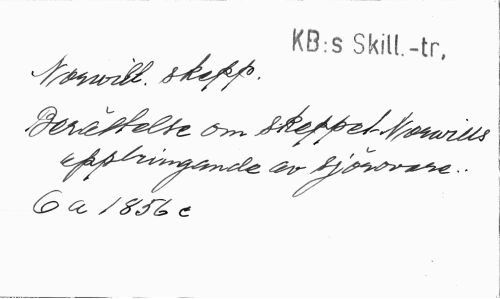 KB:s Skill.-tr,
Norwill. skepp.
Berättelse om skeppet Norwills
uppbringande av sjörövare..
6 a 1856 c